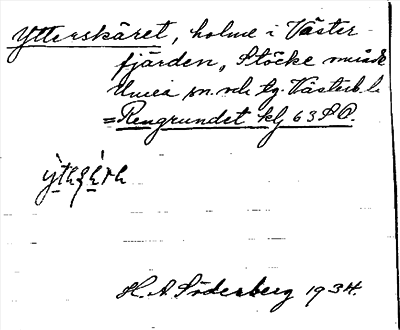 Ytterskäret, holme i Väster-
fjärden, Stöckeområde
Umeå sn. och tg. Västerb. l.
= Rengrundet kbl 63 SO.
H. A. Söderberg 1934.